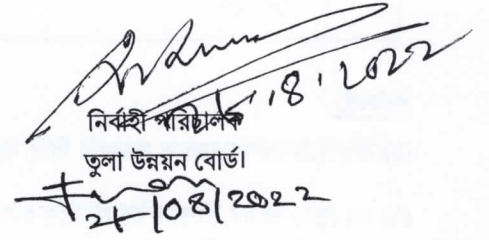 .8.2022
নির্বাহী পরিচালক
তুলা উন্নয়ন বোর্ড।
21/08/2022